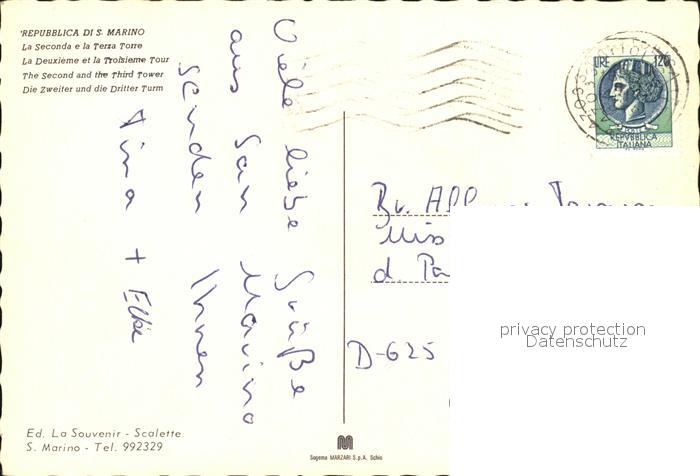 REPUBBLICA DI S. MARINO
La Seconda e la Terza Torre
La Deuxième et la Troisième Tour
The Second and the Third Tower
Die Zweiter und die Dritter Turm
Viele liebe Grüße
aus San Marino
senden Ihnen
Tina + Elke
LIRE 120
POSTE
REPVBBLICA
ITALIANA
Br. All
Miss
d. Pa
D-625
privacy protection
Datenschutz
Ed. La Souvenir - Scalette
S. Marino - Tel. 992329
M
Sogema MARZARI S.p.A. Schio